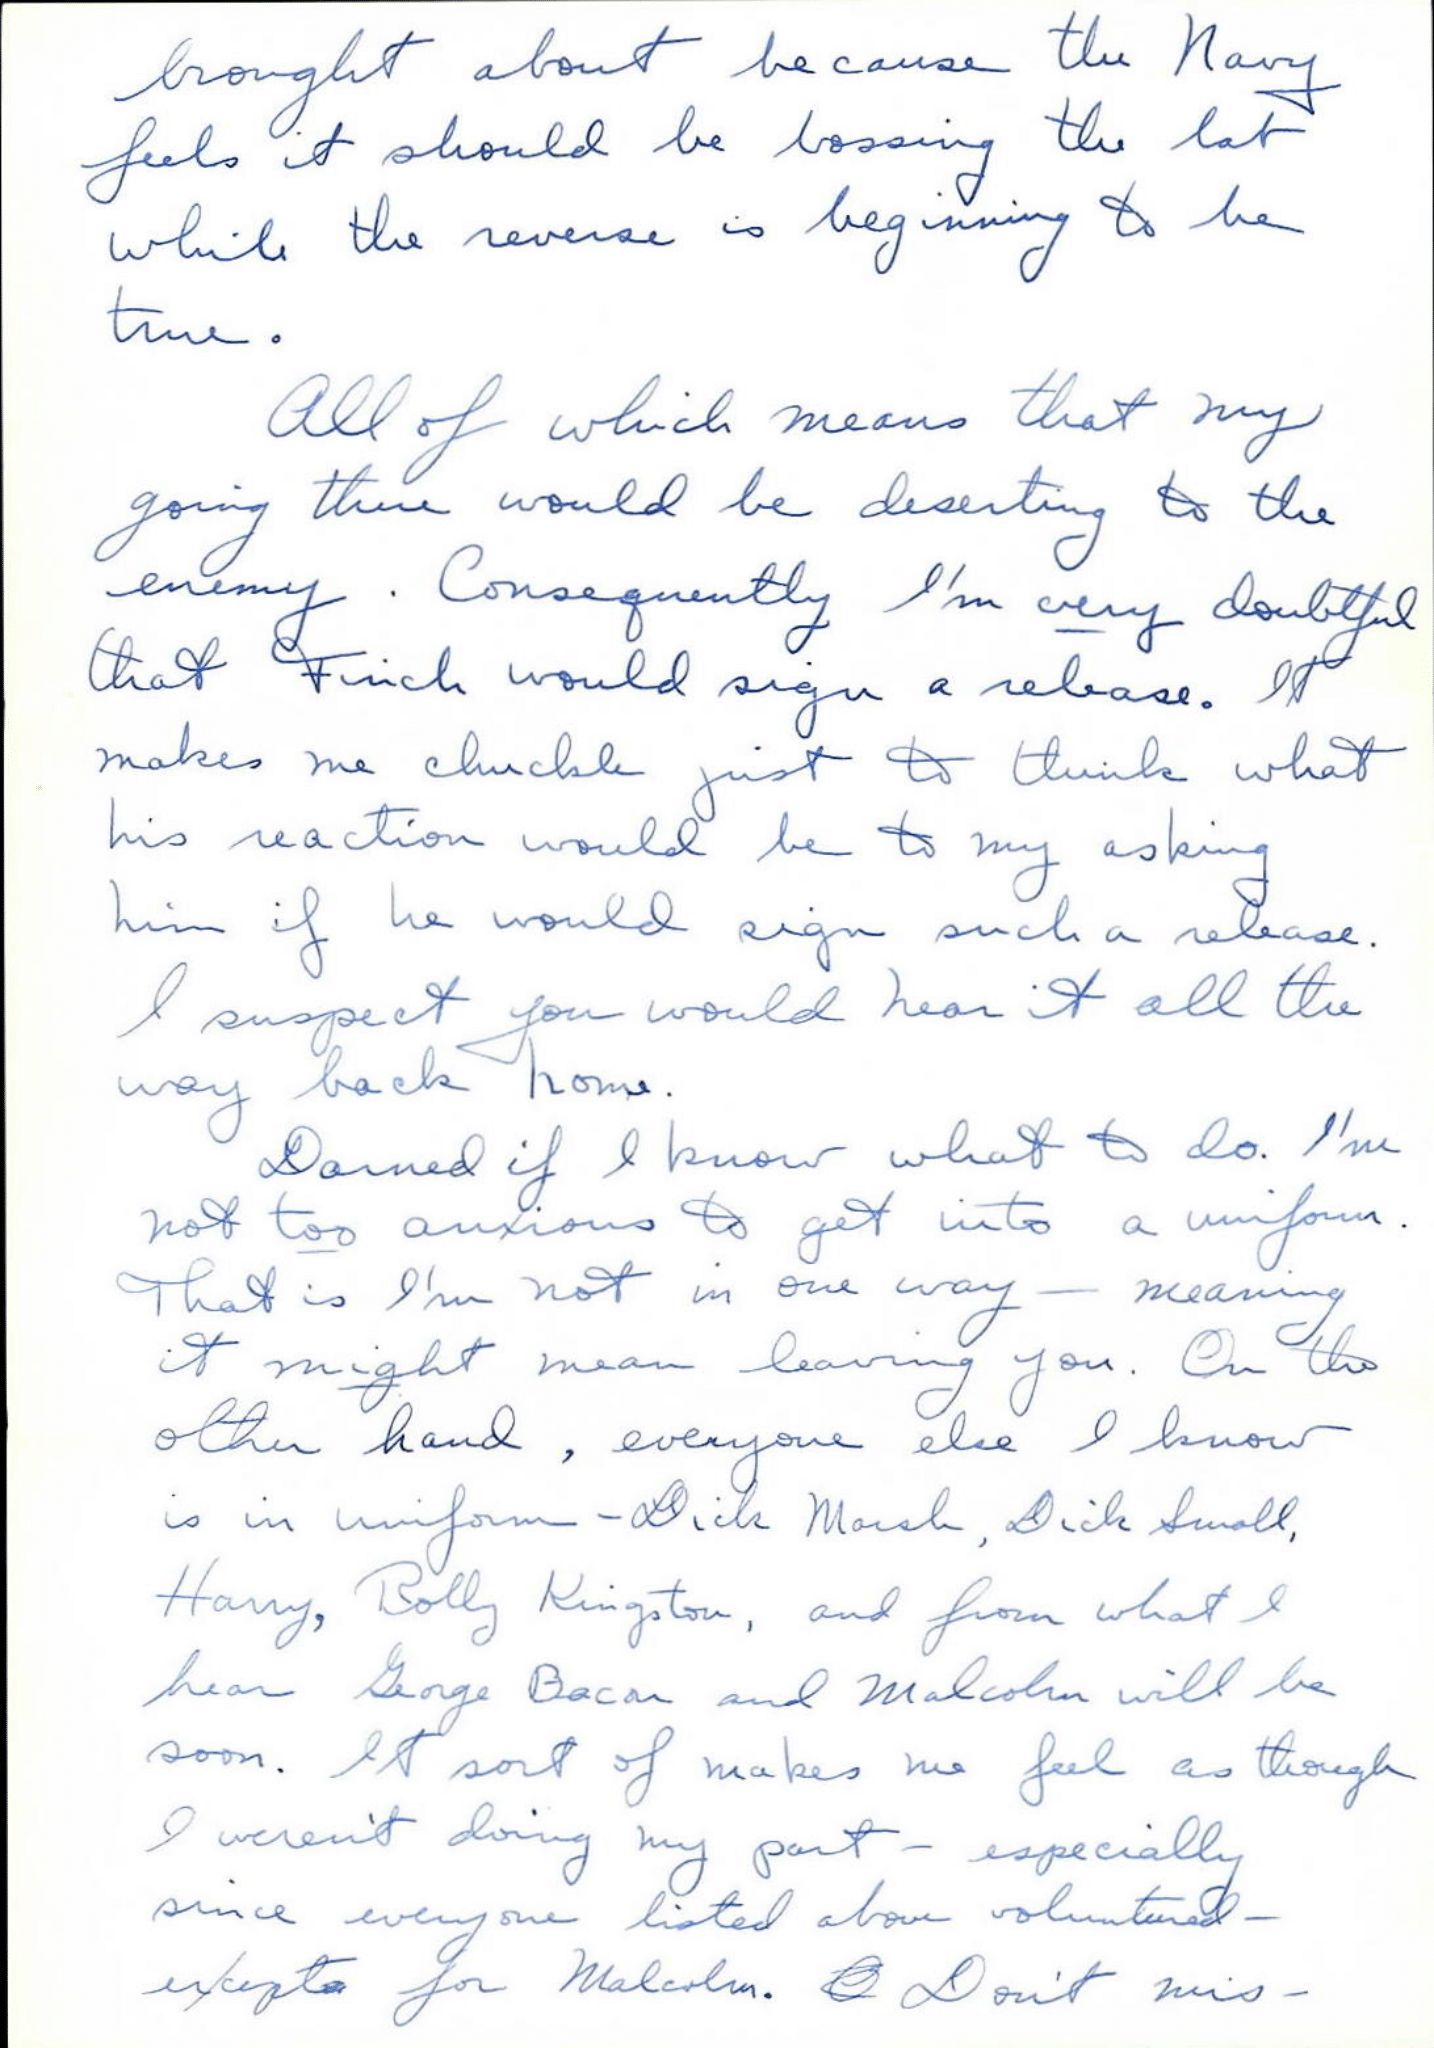 brought about because the Navy
feels it should be bossing the lot
while the reverse is beginning to be
true.
All of which means that my
going there would be deserting to the
enemy. Consequently I'm very doubtful
that Finch would sign a release. It
makes me chuckle just to think what
his reaction would be to my asking
him if he would sign such a release.
I suspect you would hear it all the
way back home.
Darned if I know what to do. I'm
not too anxious to get into a uniform.
That is I'm not in one way — meaning
it might mean leaving you. On the
other hand, everyone else I know
is in uniform - Dick Marsh, Dick Small,
Harry, Bolly Kingston, and from what I
hear George Bacon and Malcolm will be
soon. It sort of makes me feel as though
I weren't doing my part - especially
since everyone listed above volunteered -
except for Malcolm. Don't mis-